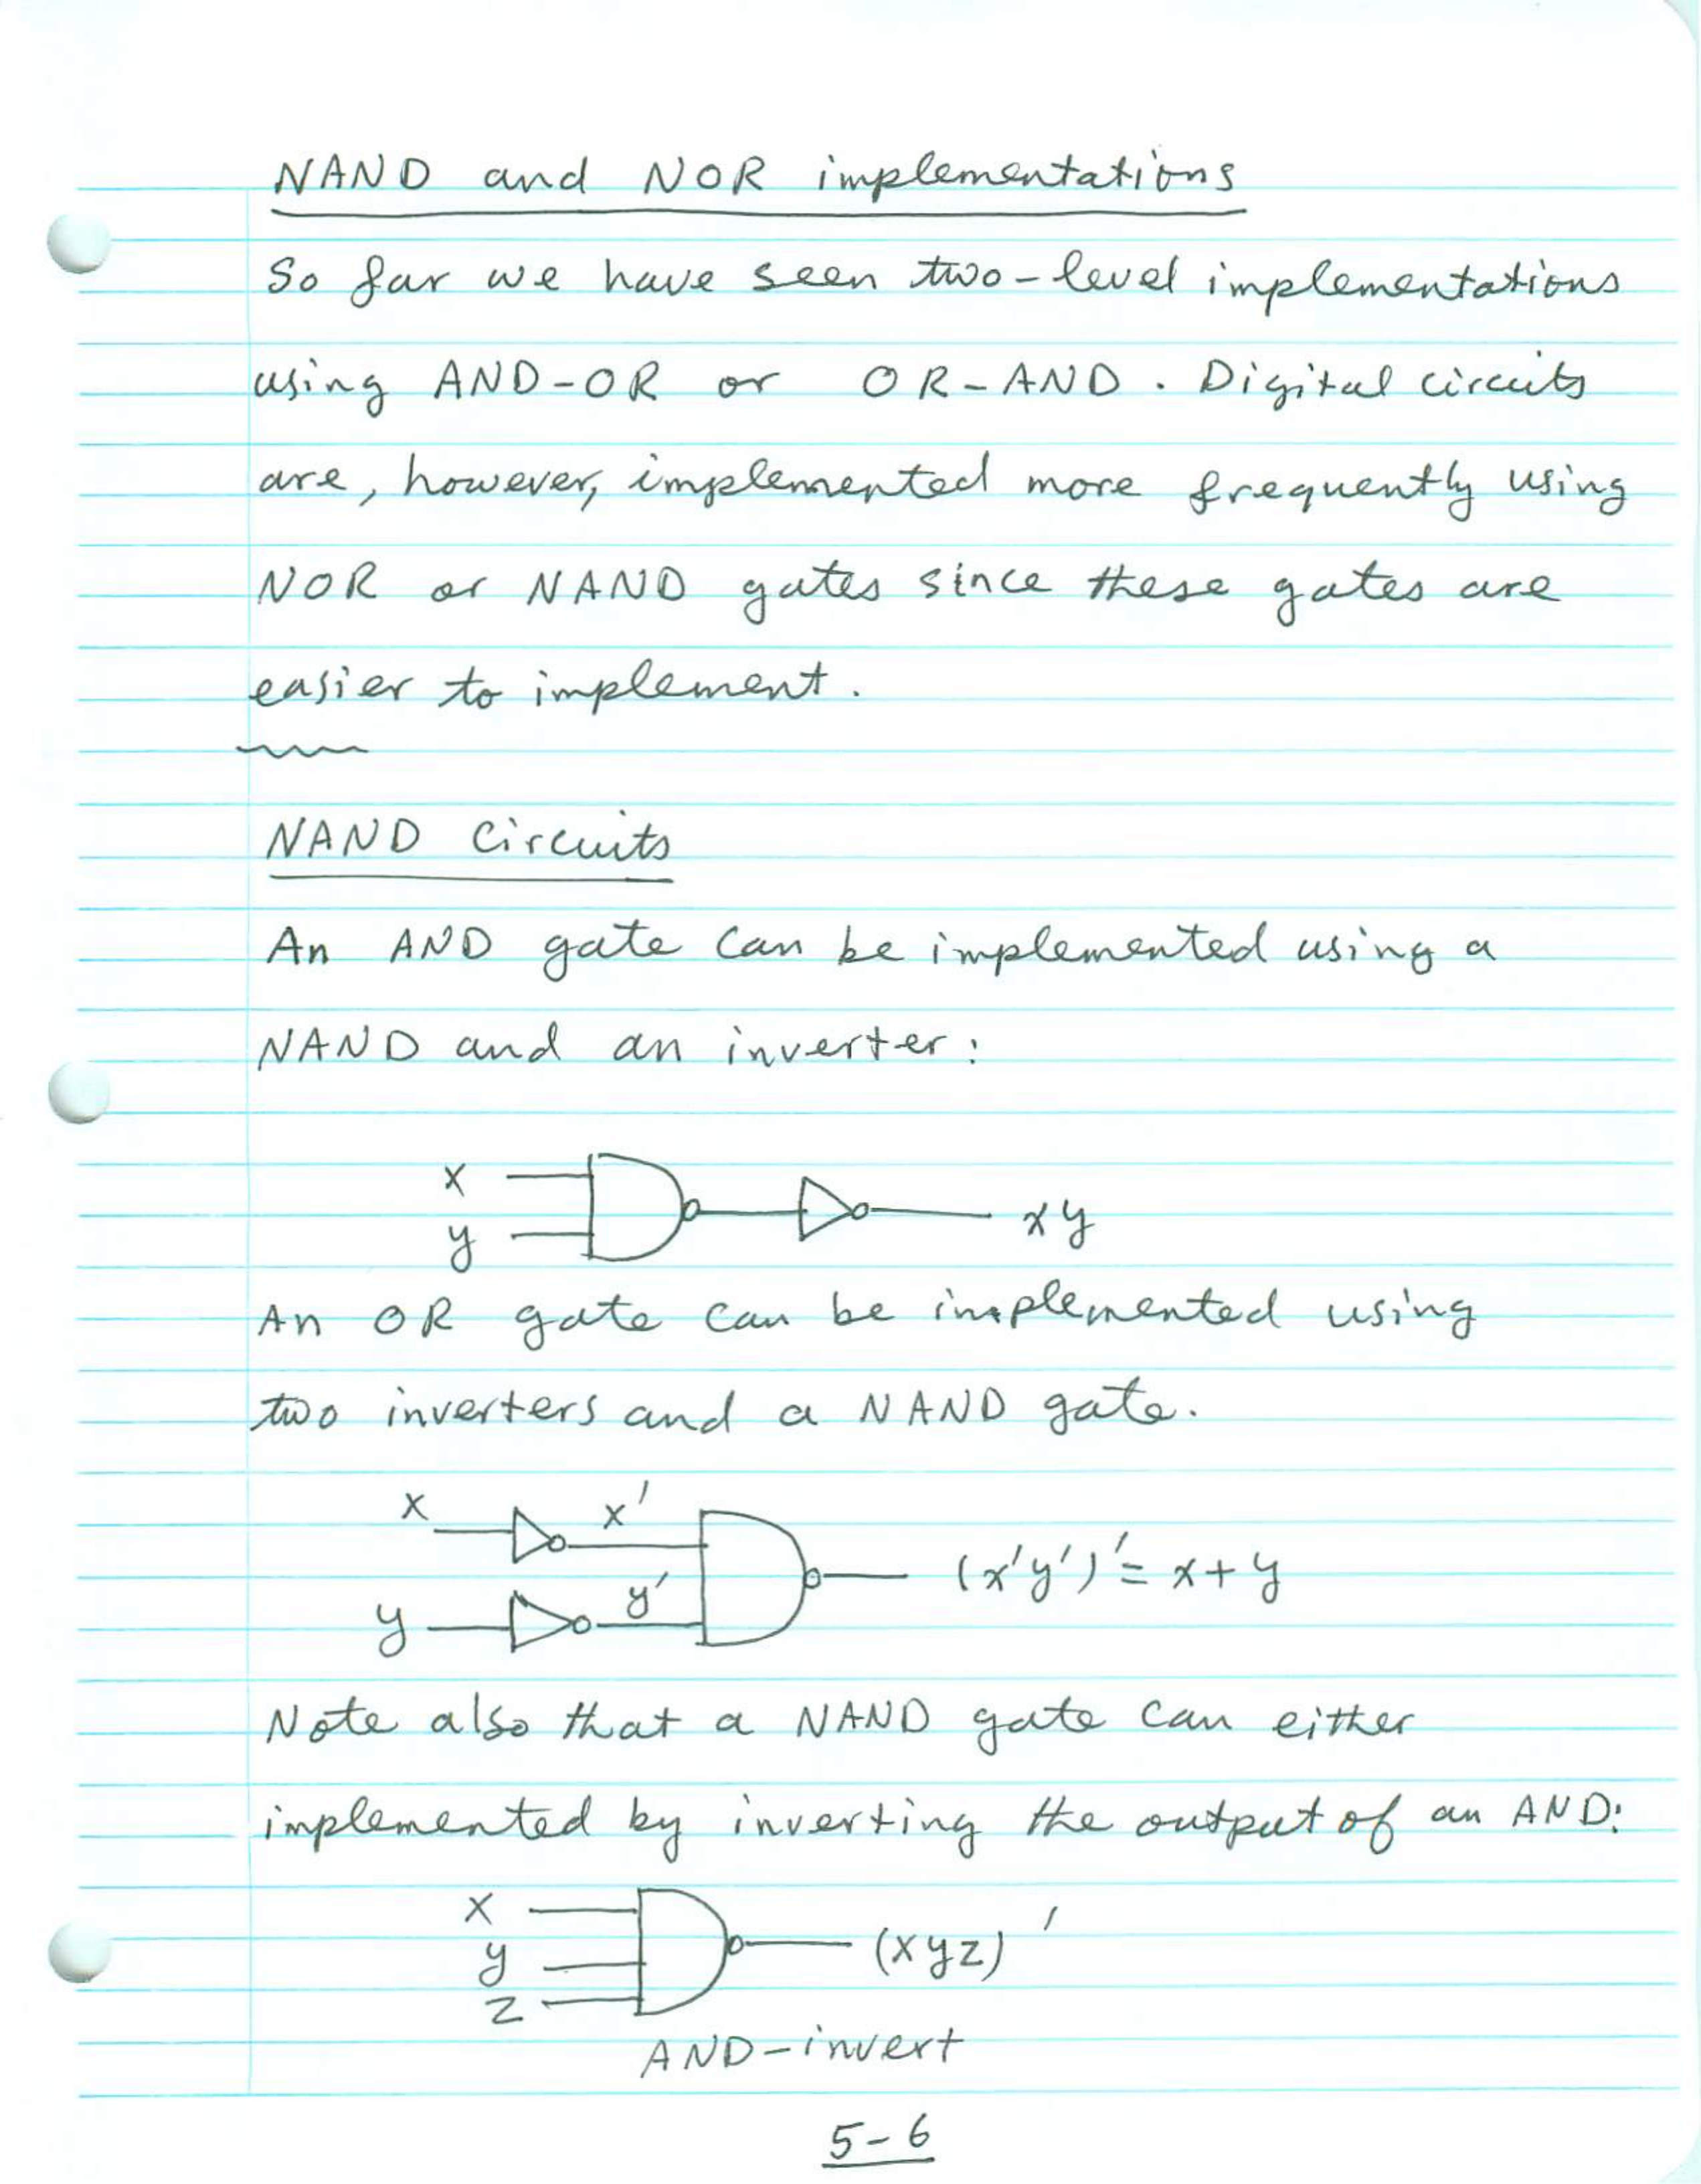 NAND and NOR implementations
So far we have seen two-level implementations
using AND-OR or OR-AND. Digital circuits
are, however, implemented more frequently using
NOR or NAND gates since these gates are
easier to implement.
NAND Circuits
An AND gate can be implemented using a
NAND and an inverter:
x
y
xy
An OR gate can be implemented using
two inverters and a NAND gate.
x x'
y y'
(x'y')' = x+y
Note also that a NAND gate can either
implemented by inverting the output of an AND:
x
y
z
(xyz)'
AND-invert
5-6